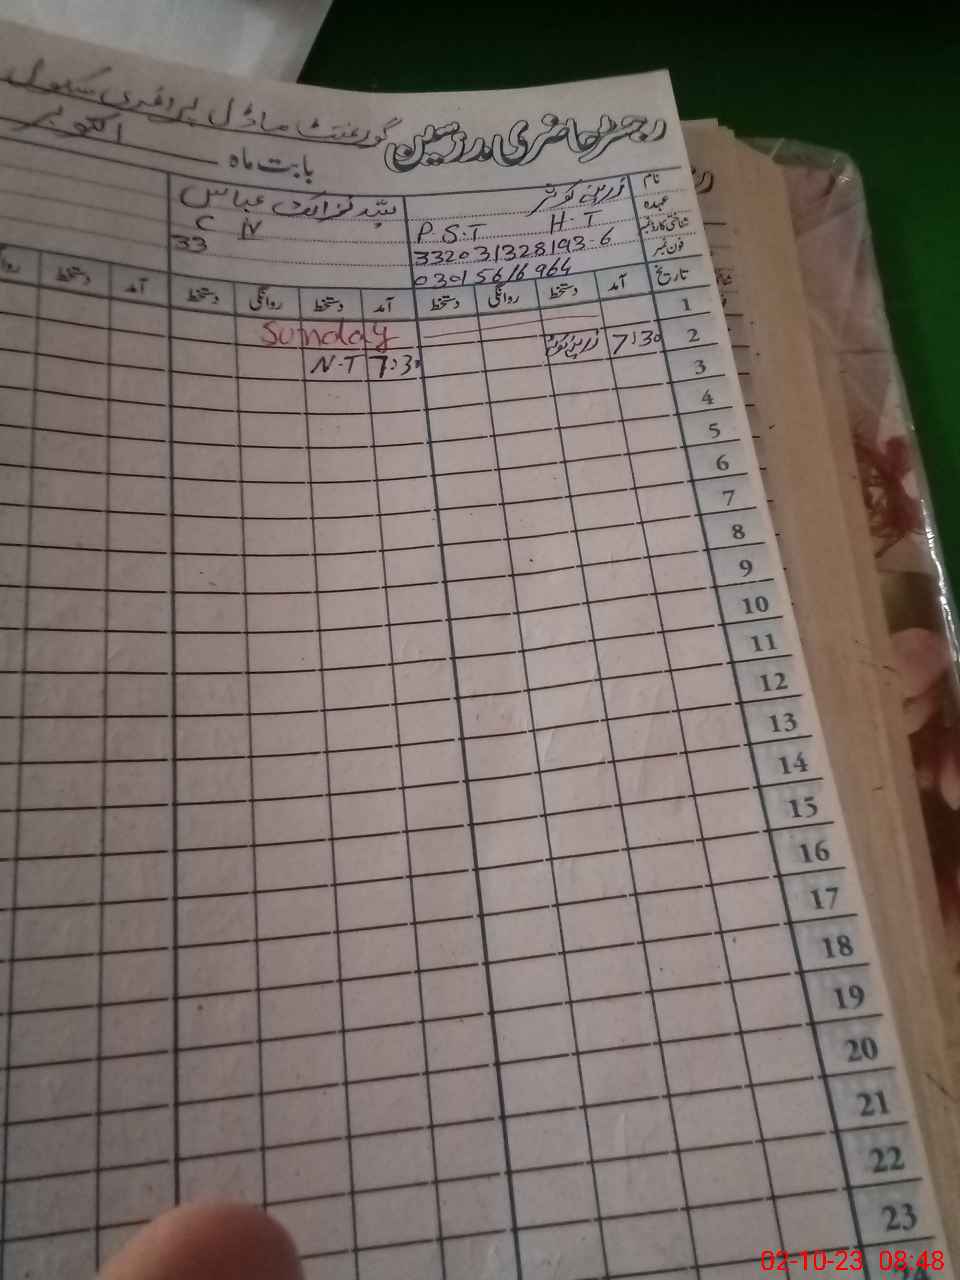 رجسٹر حاضری مدرسین گورنمنٹ ماڈل پرائمری سکول
بابت ماہ اکتوبر
نام زرینہ کوثر سید نزاکت عباس
عہدہ P.S.T H.T C IV
شناختی کارڈ نمبر 332031328193-6 33
فون نمبر 03015616964
تاریخ آمد دستخط روانگی دستخط آمد دستخط روانگی دستخط آمد دستخط
1 Sunday
2 7:30 زرینہ کوثر 7:30 N.T
3
4
5
6
7
8
9
10
11
12
13
14
15
16
17
18
19
20
21
22
23
02-10-23 08:48